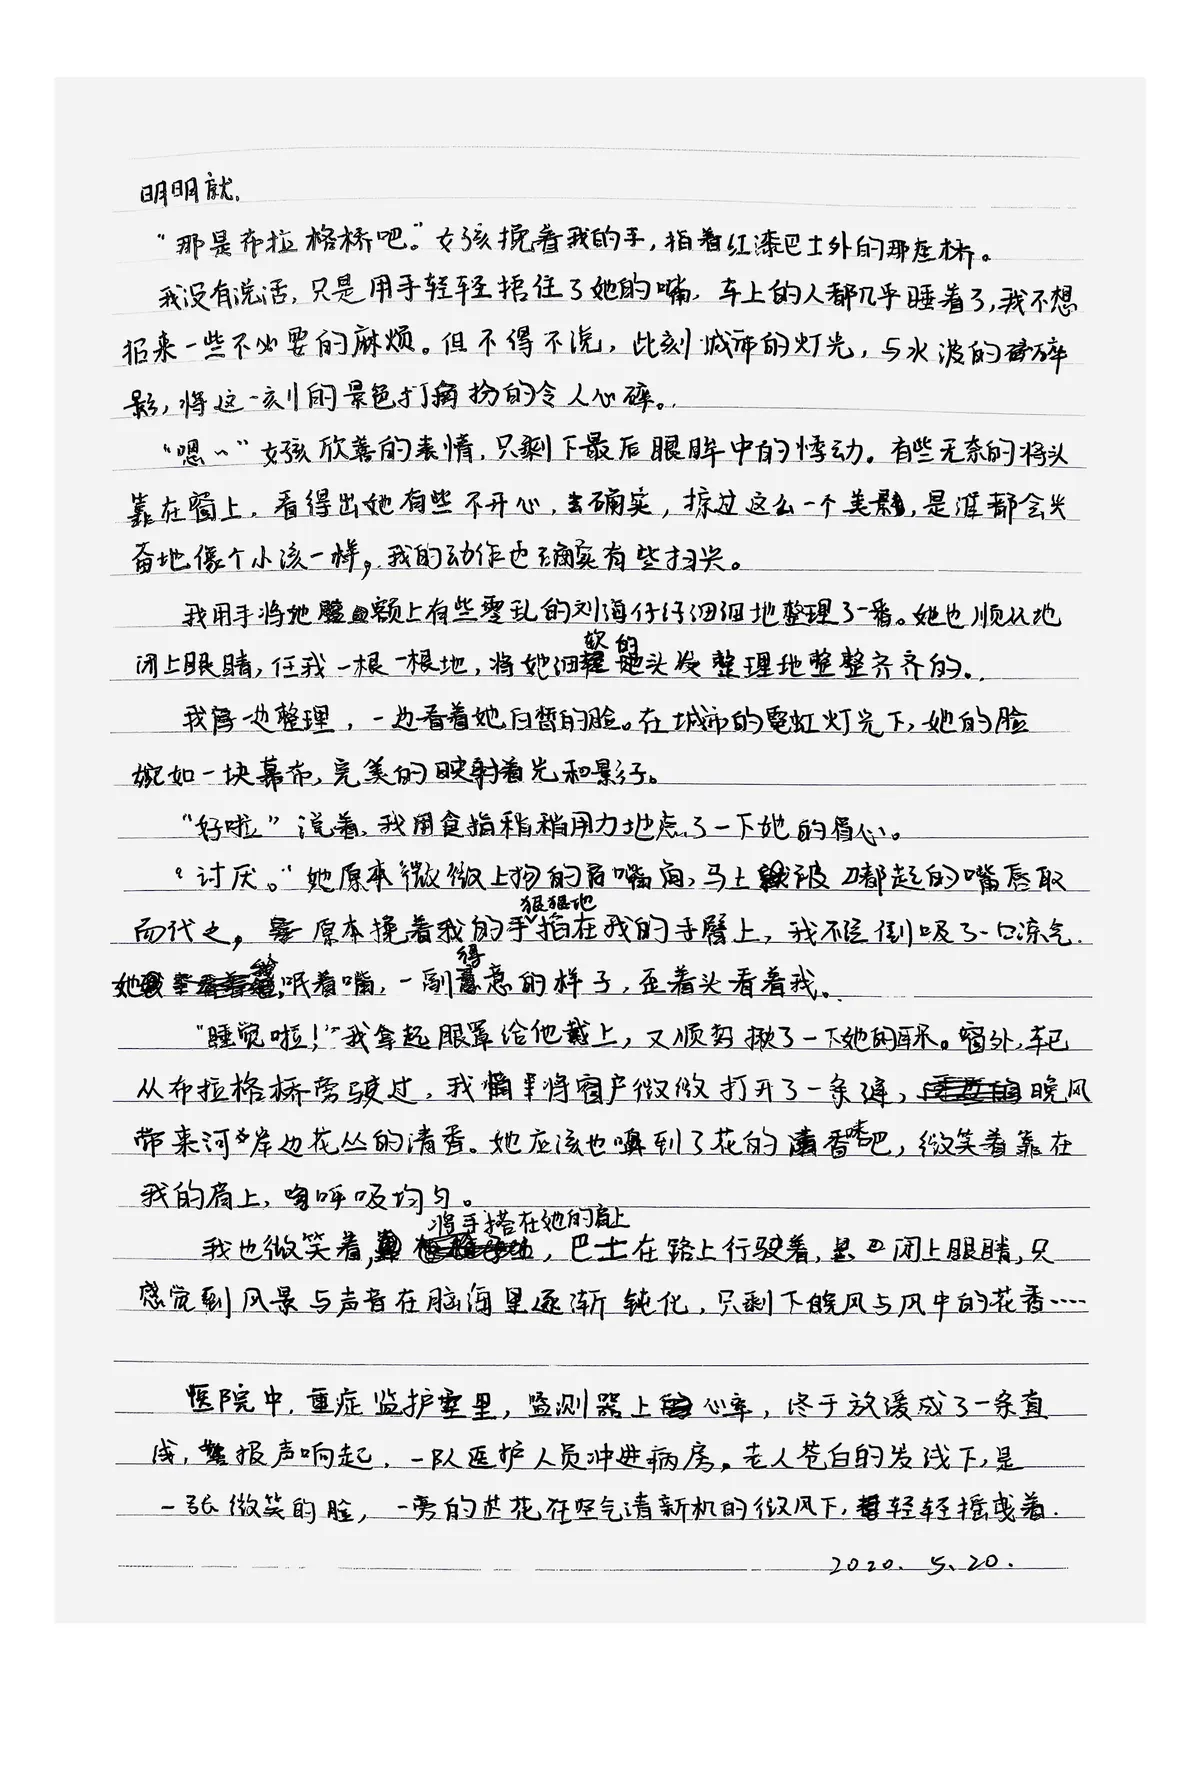 明明就.
“那是布拉格桥吧。”女孩挽着我的手，指着红漆巴士外的那座桥。
我没有说话，只是用手轻轻捂住了她的嘴，车上的人都几乎睡着了，我不想
招来一些不必要的麻烦。但不得不说，此刻城市的灯光，与水波的碎
影，将这一刻的景色打扮的令人心碎。
“嗯～”女孩欣喜的表情，只剩下最后眼眸中的悸动。有些无奈的将头
靠在窗上，看得出她有些不开心，确实，掠过这么一个美景，是谁都会兴
奋地像个小孩一样，我的动作也确实有些扫兴。
我用手将她额上有些零乱的刘海仔仔细细地整理了一番。她也顺从地
闭上眼睛，任我一根一根地，将她细软的头发整理地整整齐齐的。
我一边整理，一边看着她白皙的脸。在城市的霓虹灯光下，她的脸
宛如一块幕布，完美的映射着光和影子。
“好啦”说着，我用食指稍稍用力地点了一下她的眉心。
“讨厌。”她原本微微上扬的嘴角，马上被嘟起的嘴唇取
而代之，原本挽着我的手狠狠地掐在我的手臂上，我不怪倒吸了一口凉气.
她抿着嘴，一副得意的样子，歪着头看着我。
“睡觉啦！”我拿起眼罩给他戴上，又顺势揪了一下她的耳朵。窗外，车已
从布拉格桥旁驶过，我将窗户微微打开了一条缝，晚风
带来河岸边花丛的清香。她应该也嗅到了花的清香味吧，微笑着靠在
我的肩上，呼吸均匀。
我也微笑着，将手搭在她的肩上，巴士在路上行驶着，闭上眼睛，只
感觉到风景与声音在脑海里逐渐钝化，只剩下晚风与风中的花香……
医院中，重症监护室里，监测器上心率，终于放缓成了一条直
线，警报声响起，一队医护人员冲进病房。老人苍白的发线下，是
一张微笑的脸，一旁的花在空气清新机的微风下，轻轻摇曳着.
2020.5.20.